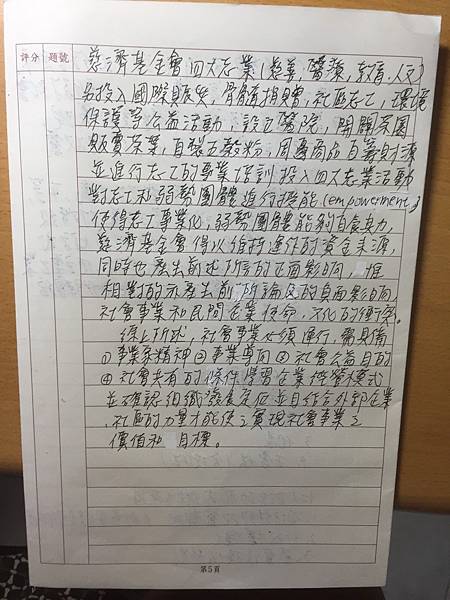 評分 題號
慈濟基金會四大志業(慈善,醫療,教育,人文)
另投入國際賑災,骨髓捐贈,社區志工,環境
保護等公益活動,設立醫院,開闢茶園
販賣茶葉,自製五穀粉,周邊商品自籌財源
並進行志工的專業培訓投入四大志業活動
對志工和弱勢團體進行增能(empowerment)
使得志工專業化,弱勢團體能夠自食其力,
慈濟基金會得以維持運作的資金來源,
同時也產出前述所言的正面影响,惟
相對的亦產出前所論及的負面影响,
社會事業和民間企業使命,文化的衝突。
綜上所述,社會事業必須運行,需具備
①事業家精神②事業導向③社會公益目的
④社會共有的條件,學習企業經營模式
並確認組織發展定位並且結合外部企業
、社區的力量才能使之實現社會事業之
價值和目標。
第5頁